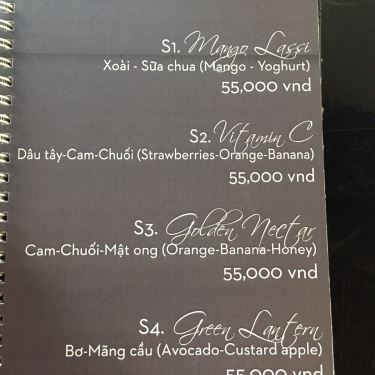 S1. Mango Lassi
Xoài - Sữa chua (Mango - Yoghurt)
55,000 vnd
S2. Vitamin C
Dâu tây-Cam-Chuối (Strawberries-Orange-Banana)
55,000 vnd
S3. Golden Nectar
Cam-Chuối-Mật ong (Orange-Banana-Honey)
55,000 vnd
S4. Green Lantern
Bơ-Mãng cầu (Avocado-Custard apple)
55,000 vnd